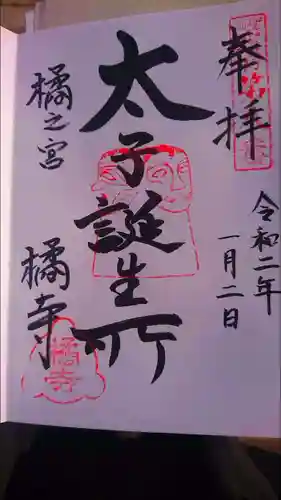 奉拝
令和二年
一月二日
太子誕生所
橘之宮
橘寺
橘寺